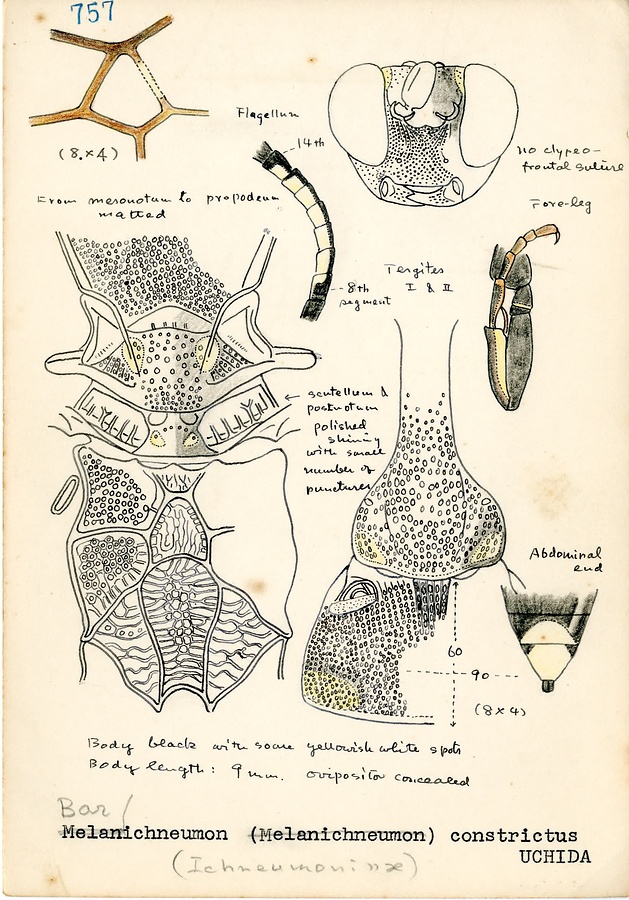 757
(8.x4)
Flagellum
14th
No clypeo-
frontal suture
From mesonotum to propodeum
matted
Fore-leg
8th
segment
Tergites
I & II
scutellum &
postnotum
polished
shining
with small
number of
punctures
Abdominal
end
60
90
(8x4)
Body black with some yellowish white spots
Body length: 9 mm. ovipositor concealed
Bar/
Melanichneumon (Melanichneumon) constrictus
UCHIDA
(Ichneumoninae)